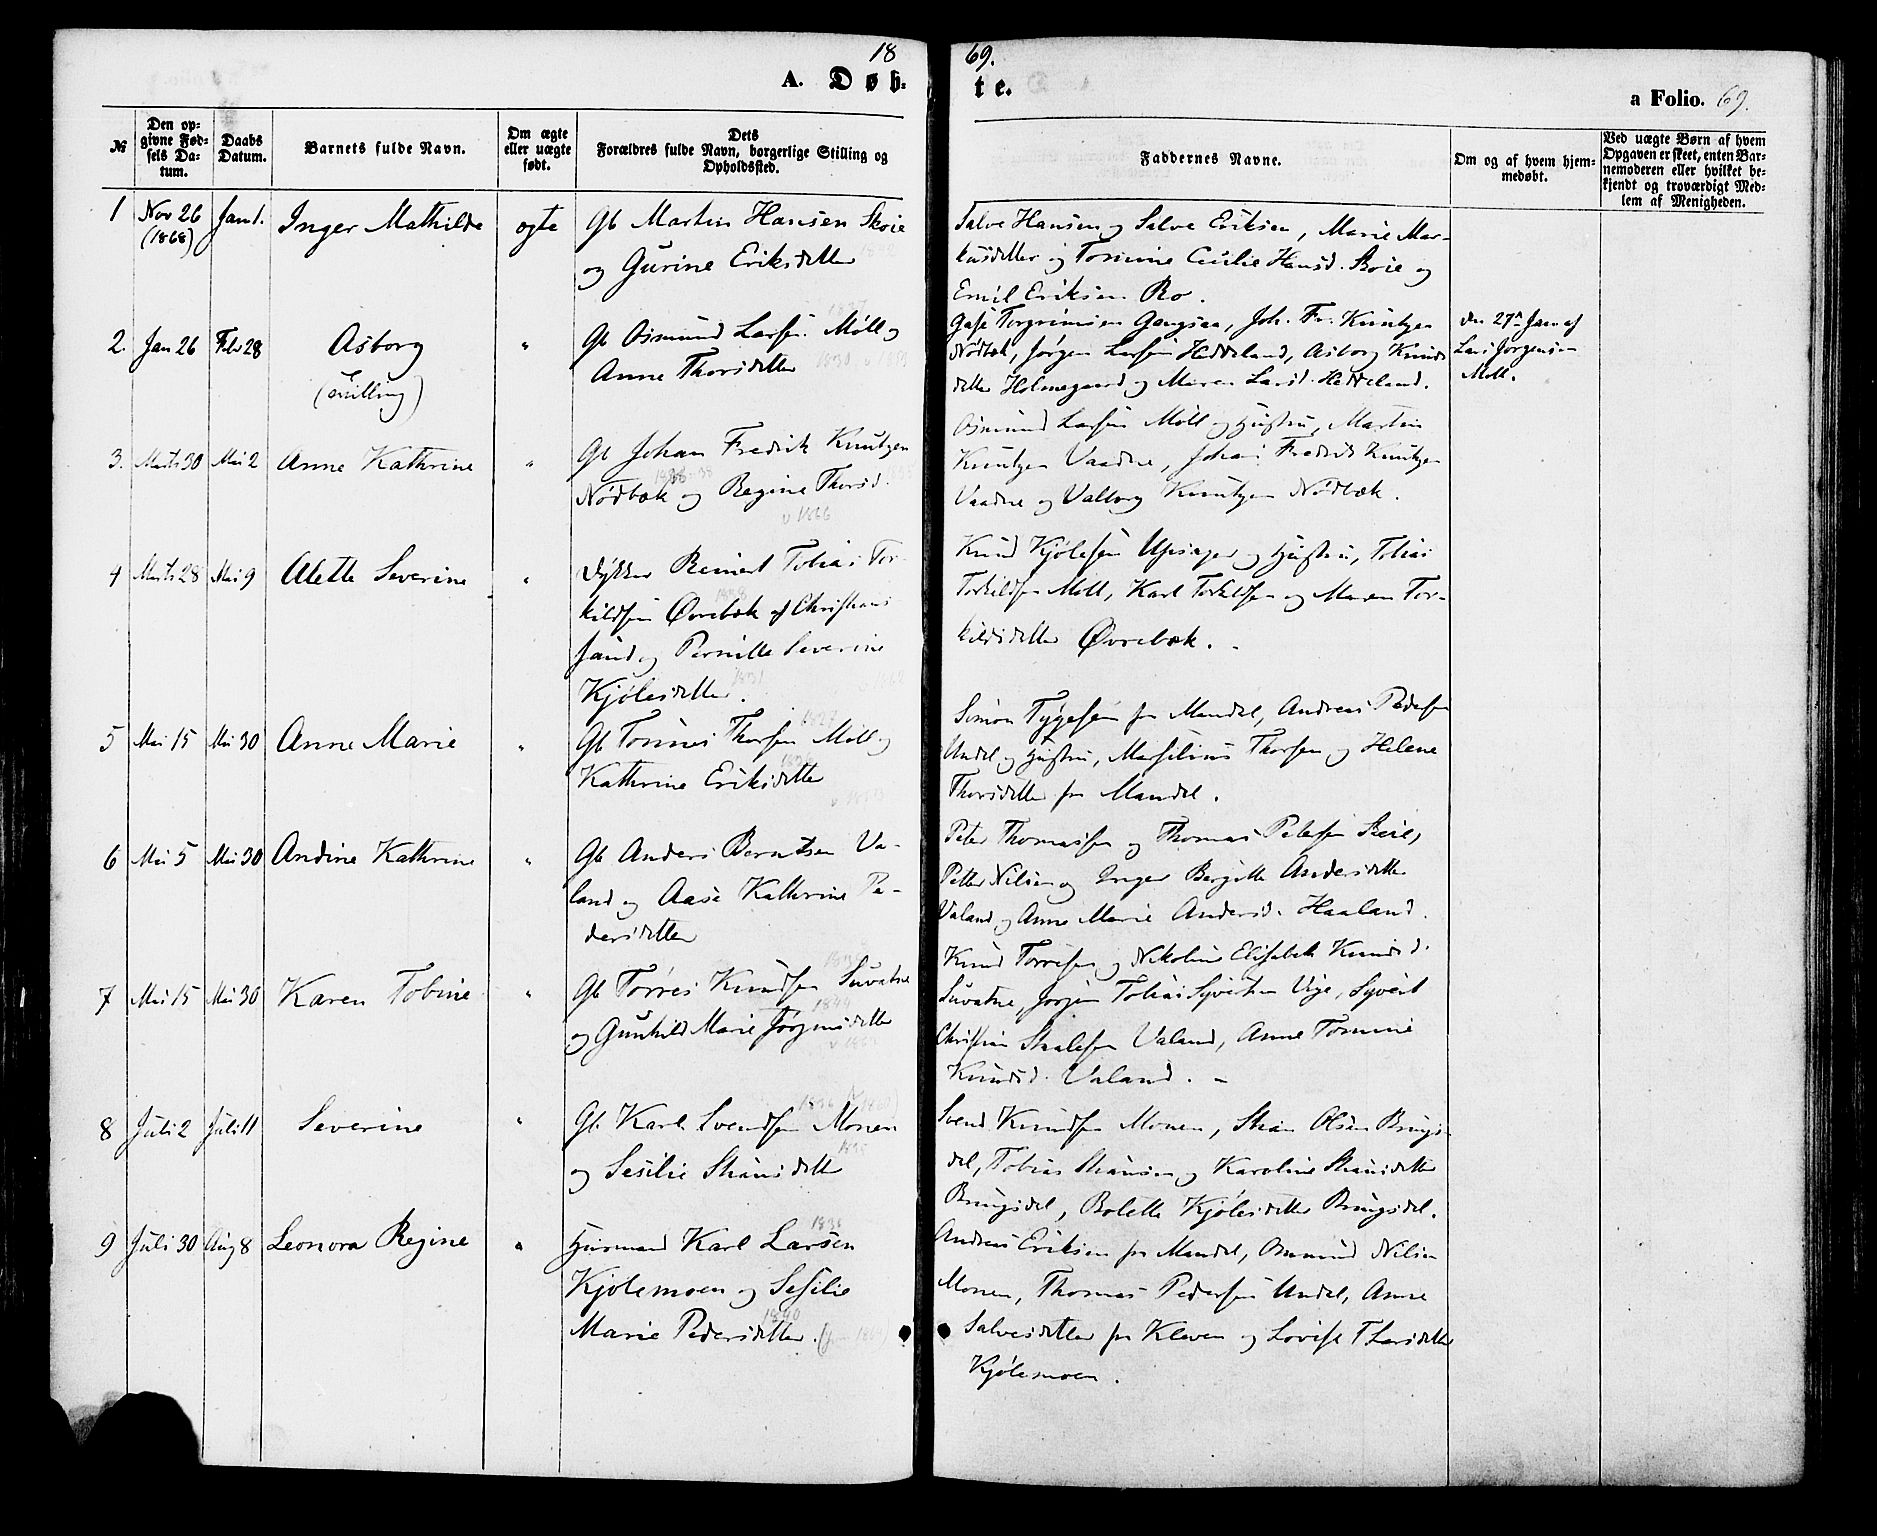 18 69.
A. Døb- te.
a Folio. 69.
№
Den opgivne Fødsels Datum.
Daabs Datum.
Barnets fulde Navn.
Om ægte eller uægte født.
Dets Forældres fulde Navn, borgerlige Stilling og Opholdssted.
Faddernes Navne.
Om og af hvem hjemmedøbt.
Ved uægte Børn af hvem Opgaven er skeet, enten Barnemoderen eller hvilket bekjendt og troværdigt Medlem af Menigheden.
1 Nov 26 (1868) Jan 1. Inger Mathilde ægte
Gb Martin Hansen Skoie
og Gurine Eriksdatter
Salve Hansen og Salve Eriksen, Marie Mar-
kusdatter og Tomine Cicilie Hansd. Skoie og
Emil Eriksen Ro.
2. Jan 26 Feb 28 Asborg "
(tvilling)
Gb Osmund Larsen Møll og
Anne Thorsdatter 1830
Torgrimsen Gangsaa, Joh. Fr. Knutzen
Nødbæk, Jørgen Larsen Heddeland, Asborg Knuds
datter Holmegaard og Maren Larsd. Heddeland.
den 27de Jan af
Lars Jørgensen
Møll.
3. Marts 30 Mai 2 Anne Kathrine "
Gb Johan Fredrik Knutzen
Nødbæk og Regine Thorsd.
v 1866
Osmund Larsen Møll og Hustru, Martin
Knutzen Vaadne, Johan Fredrik Knutzen
Vaadne og Valborg Knutzen Nødbæk.
4 Marts 28 Mai 9 Alette Severine "
Dykker Reinert Tobias Tor-
kildsen Øvrebæk af Christians
sand og Pernille Severine
Kjølesdatter. 1831
Knud Kjølesen Upsager og Hustru, Tobias
Torkildsen Møll, Karl Torkildsen og Maren Tor-
kildsdatter Øvrebæk.
5 Mai 15 Mai 30 Anne Marie "
Gb Tønnes Thorsen Møll og
Kathrine Eriksdatter
Simon Tygesen fr Mandal, Andreas Pedersen
Undal og Hustru, Marsilius Thorsen og Helene
Thorsdatter fr Mandal.
6 Mai 5 Mai 30 Andine Kathrine "
Gb Anders Berntsen Va-
land og Aase Kathrine Pe-
dersdatter
Peter Thomassen og Thomas Petersen Skoie,
Petter Nilsen og Inger Bergitte Andersdatter
Valand og Anne Marie Andersd. Haaland.
7 Mai 15 Mai 30 Karen Tobine "
Gb Tørres Knudsen Suvatne
og Gunhild Marie Jørgensdatter
Knud Tørresen og Nikoline Elisabet Knudsd.
Suvatne, Jørgen Tobias Syvertsen Vige, Syvert
Christian Staalesen Valand, Anne Tomine
Knudsd. Valand.
8 Juli 2 Juli 11 Severine "
Gb. Karl Svendsen Monen
og Sesilie Stiansdatter
Svend Knudsen Monen, Stian Olsen Brings-
dal, Tobias Stiansen og Karoline Stiansdatter
Bringsdal, Bolette Kjølesdatter Bringsdal.
9 Juli 30 Aug 8 Leonora Regine "
Huusmand Karl Larsen
Kjølemoen og Sesilie
Marie Pedersdatter.
Andreas Eriksen fr Mandal, Osmund Nilsen
Monen, Thomas Pedersen Undal, Anne
Salvesdatter fr Kleven og Lovise T Larsdatter
Kjølemoen.